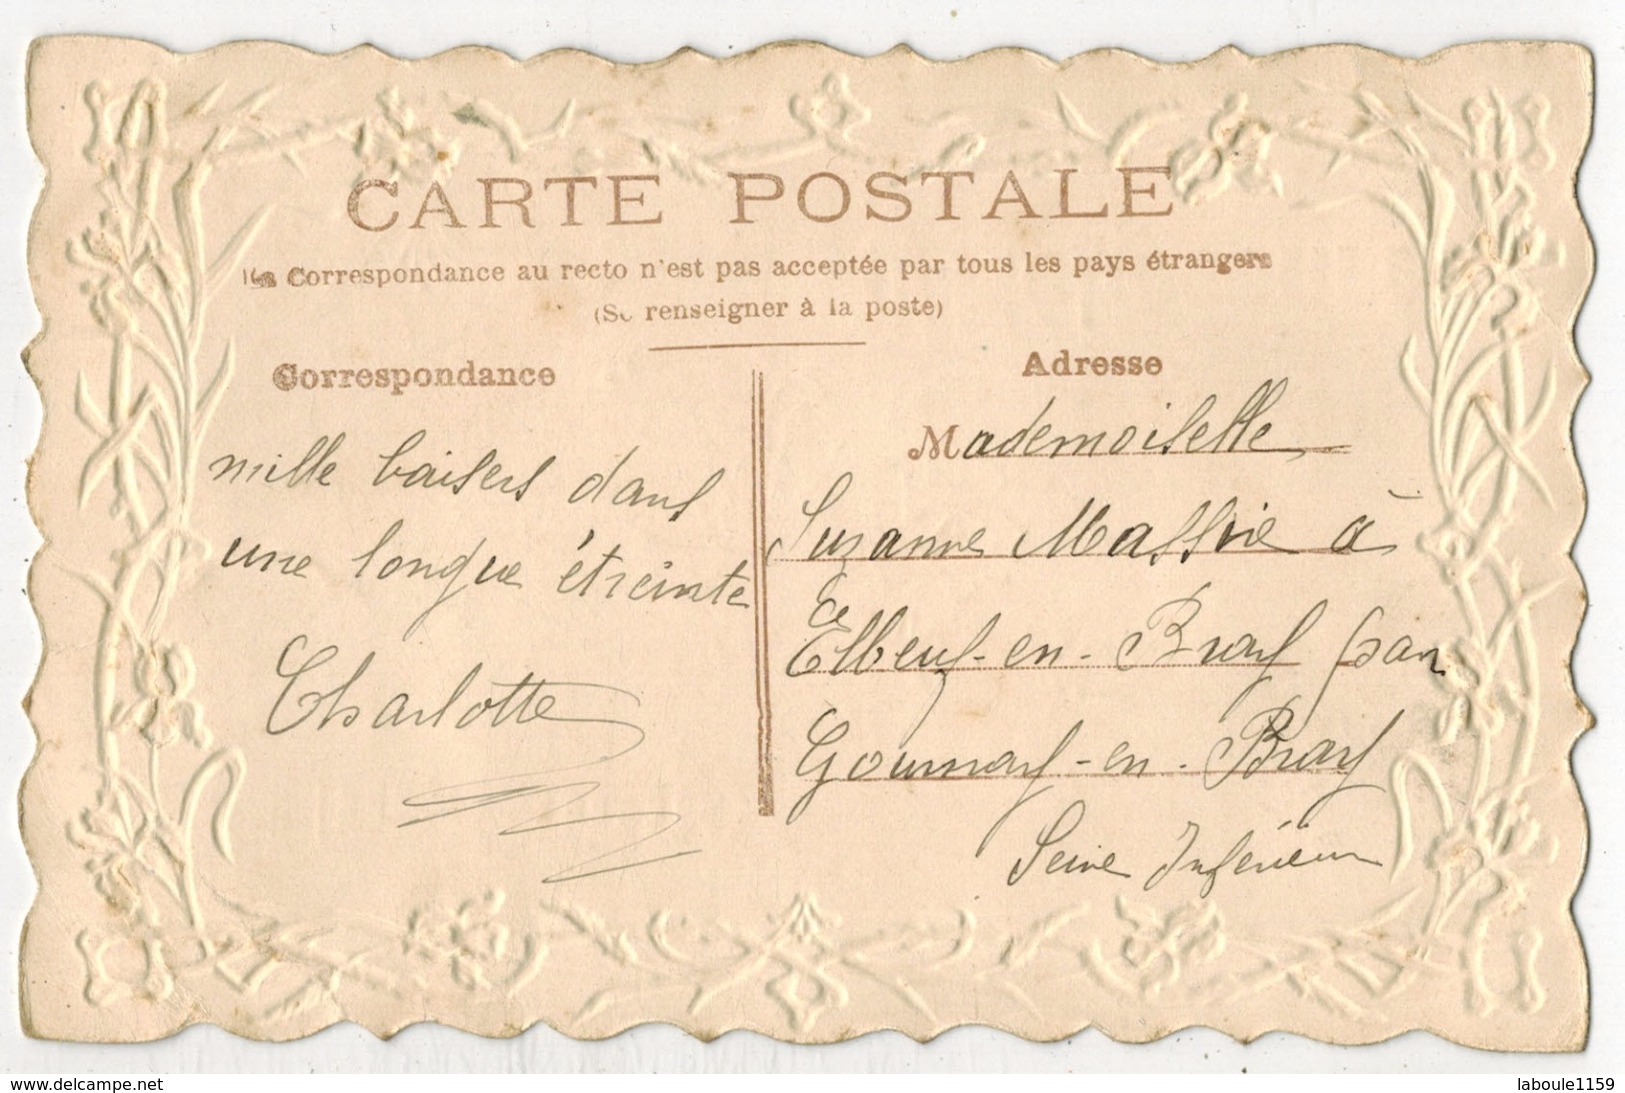 CARTE POSTALE
La Correspondance au recto n'est pas acceptée par tous les pays étrangers
(Se renseigner à la poste)
Correspondance
mille baisers dans
une longue étreinte
Charlotte
Adresse
Mademoiselle
Suzanne à
Elbeuf-en-Bray par
Gournay-en-Bray
Seine Inférieure
www.delcampe.net
laboule1159